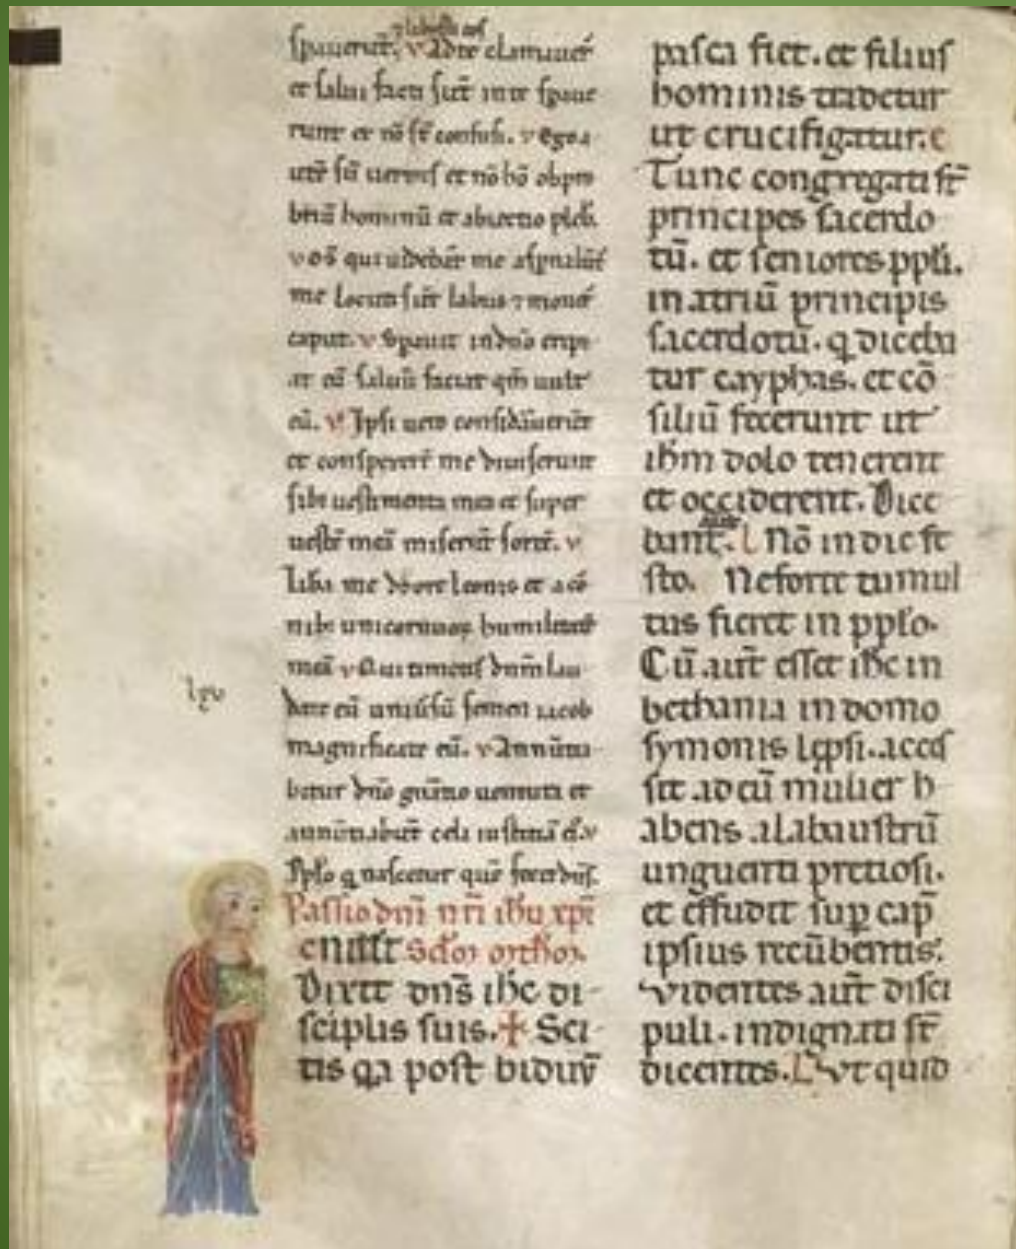 sperauerūt. v Ad te clamauer̄
et salui facti sūt in te spaue
runt et nō st̄ confusi. v Ego a
utē sū uermis et nō hō obpro
briū hominū et abiectio pleb.
v oēs qui uidebāt me aspnabāt̄
me locuti sūt labiis ⁊ mouer̄
caput. v Spauit in dn̄o eripi
at eū saluū faciat qm̄ uult
eū. v Ipsi uero considerauerūt
et conspexerūt me diuiserunt
sibi uestimenta mea et super
uestē meā miserūt sortē. v
Liba me de ore leonis et a cō
nibꝰ unicornuoꝝ humilitatē
meā v Qui timetis dn̄m lau
date eū uniūsū semen iacob
magnificate eū. v Annūtia
bitur dn̄o gn̄atio uentura et
annūtiabūt celi iustitiā ei. v
Pplo q nascetur quē fecit dn̄s.
Passio dn̄i nr̄i ihu xp̄i
Dixit dn̄s ihc di
sciplis suis. + Sci
tis qa post biduū
pasca fiet. et filius
hominis tradetur
ut crucifigatur. c
Tunc congregati st̄
principes sacerdo
tū. et seniores ppli.
in atriū principis
sacerdotū. q diceba
tur cayphas. et cō
siliū fecerunt ut
ihm dolo tenerent
et occiderent. Dice
bant. L Nō in die fe
sto. Ne forte tumul
tus fieret in pplo.
Cū aut̄ esset ihc in
bethania in domo
symonis lepsi. acces
sit ad eū mulier h
abens alabaustrū
unguenti pretiosi.
et effudit sup cap̄
ipsius recūbentis.
Videntes aut̄ disci
puli. indignati st̄
dicentes. L Vt quid